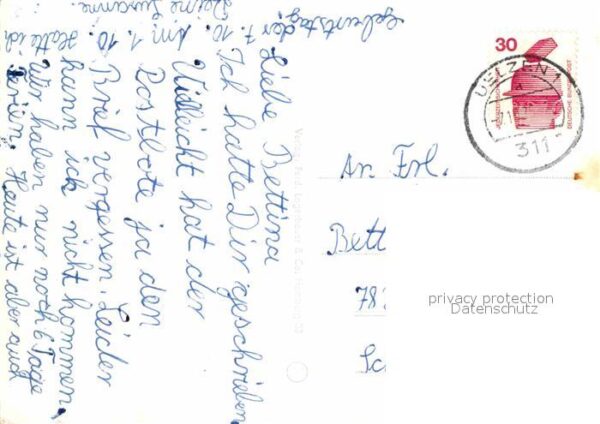 Liebe Bettina
Ich hatte Dir geschrieben
Villeicht hat der
Postbote ja den
Brief vergessen. Leider
kann ich nicht kommen,
wir haben nur noch 6 Tage
Ferien. Heute ist aber auch
der 7. 10. Am 1. 10. Hatte ich
Geburtstag!
Deine Susanne.
An Frl.
Bett
78
Sc
30
DEUTSCHE BUNDESPOST
UELZEN 1
a
311
privacy protection
Datenschutz